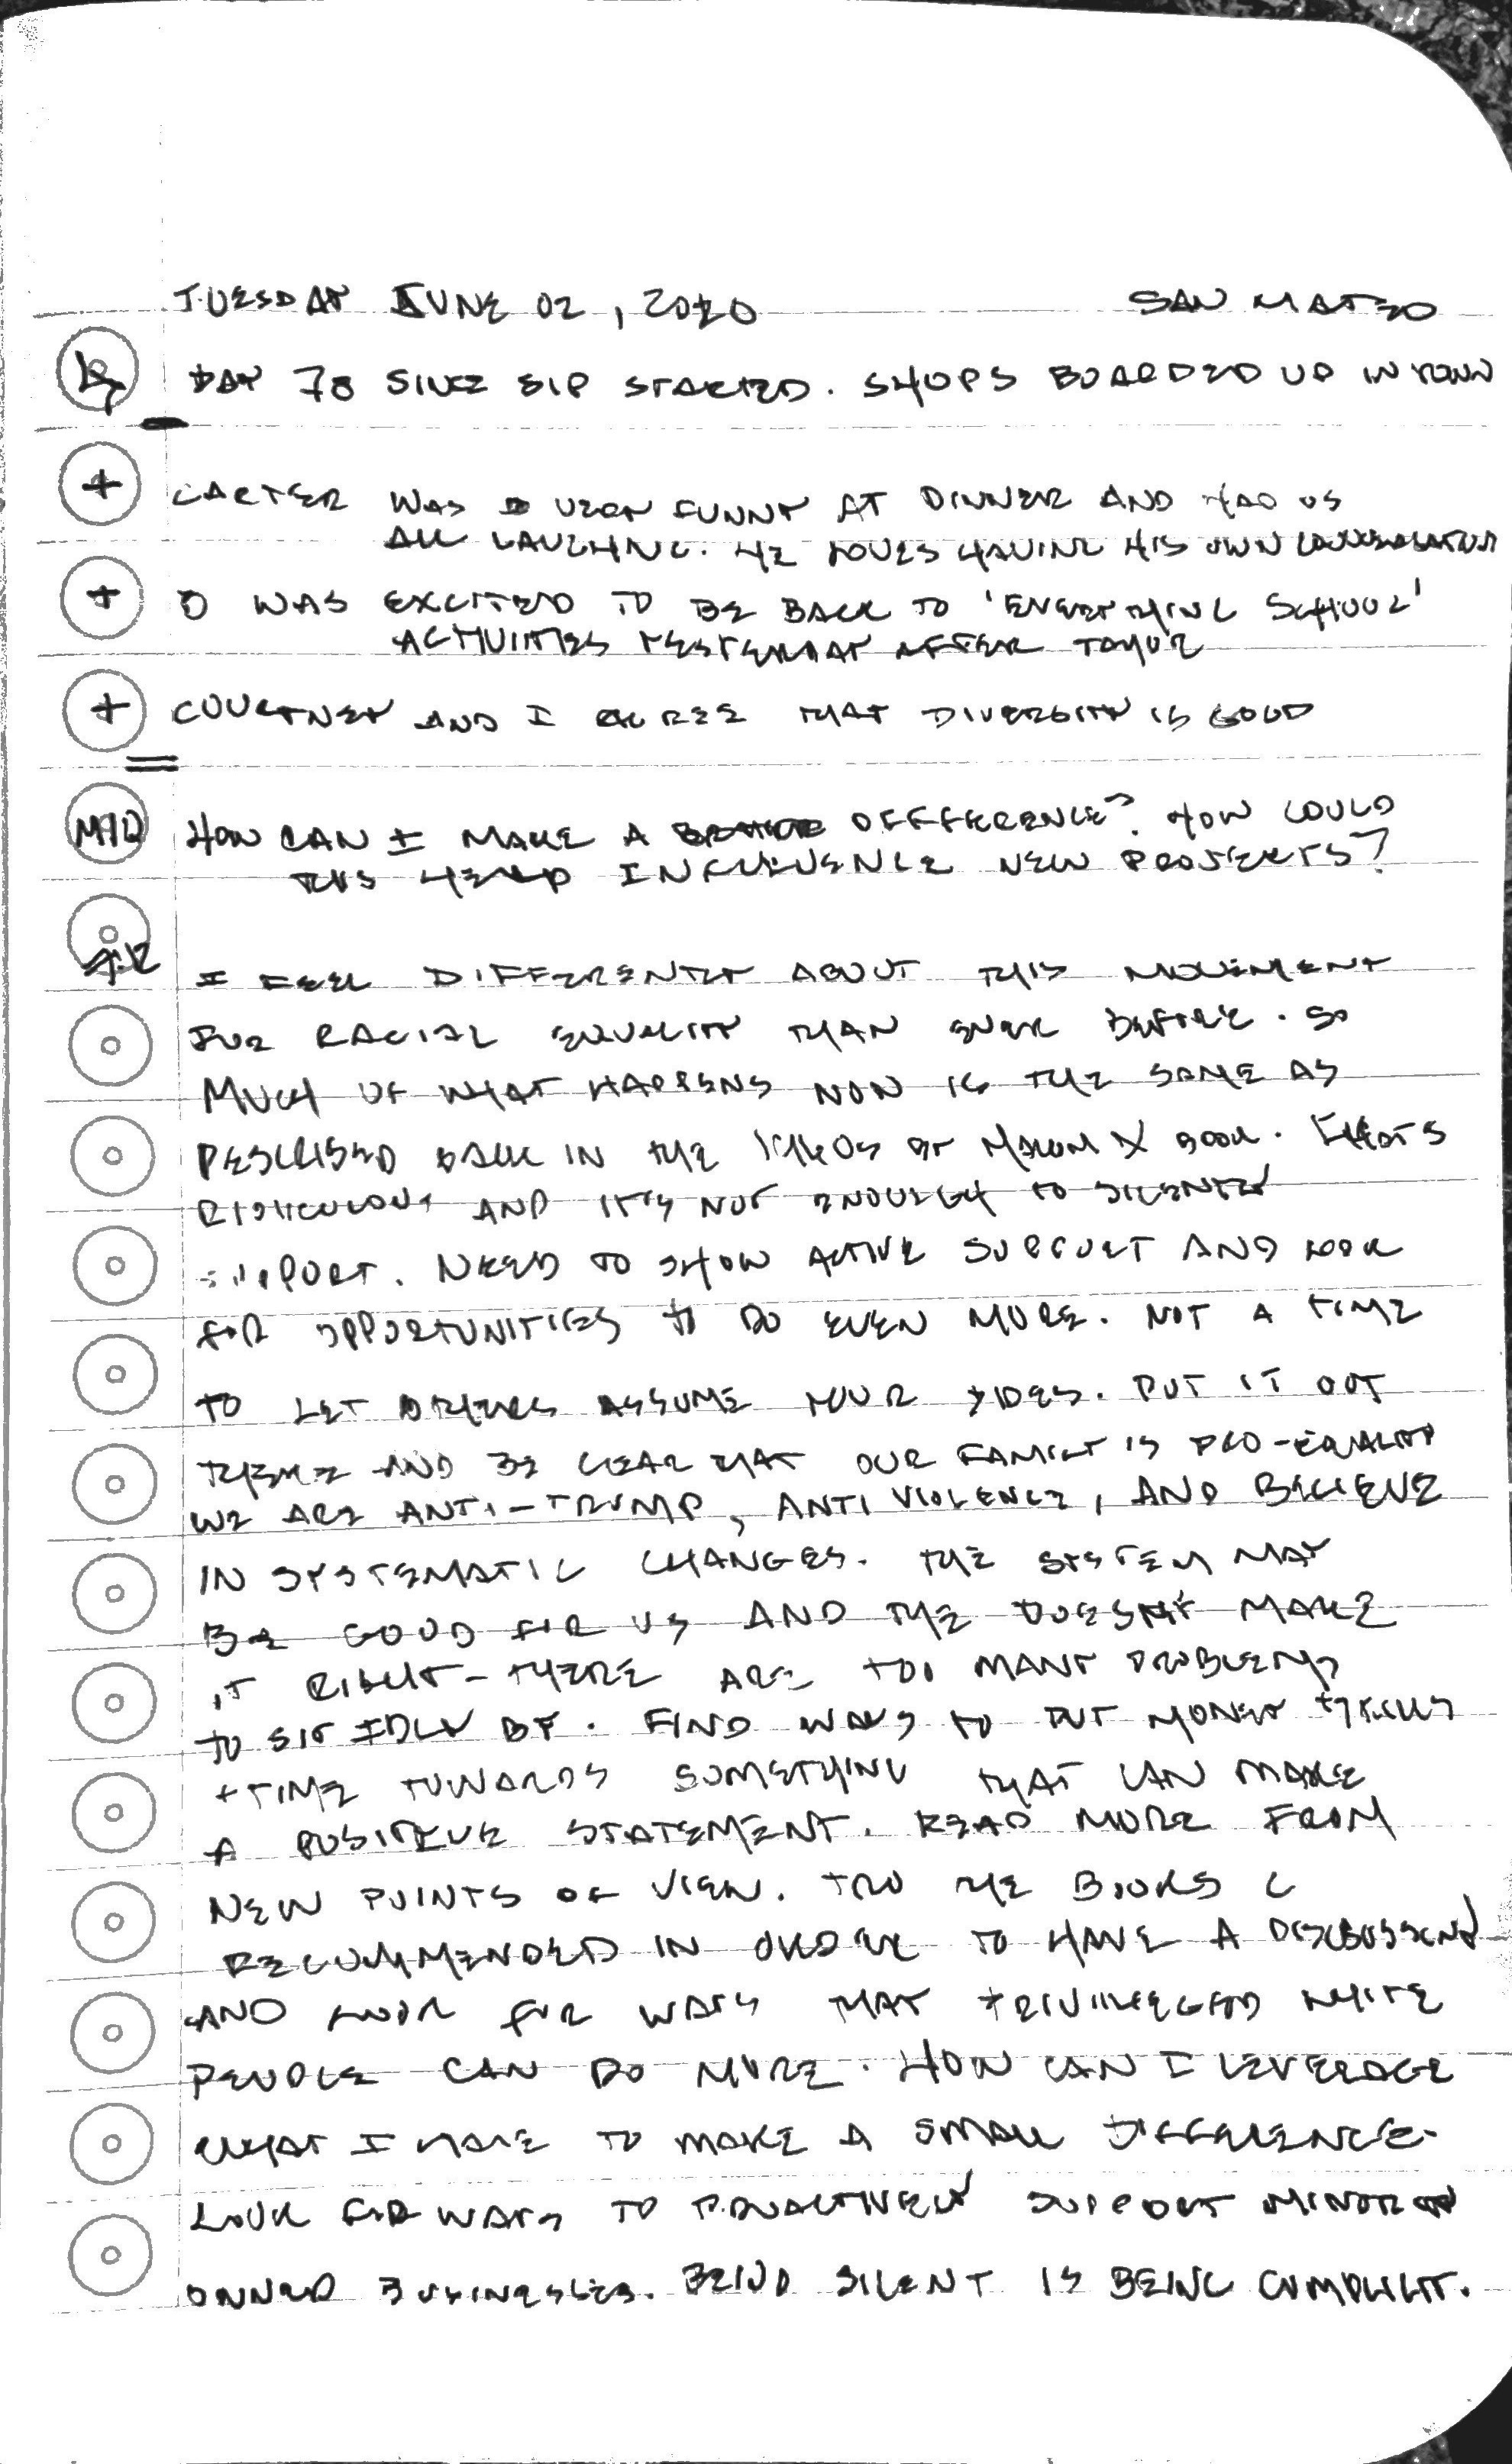 TUESDAY JUNE 02, 2020 SAN MATEO
DAY 78 SINCE SIP STARTED. SHOPS BOARDED UP IN TOWN
+ CARTER WAS VERY FUNNY AT DINNER AND HAD US
ALL LAUGHING. HE LOVES HAVING HIS OWN CONVERSATION
+ O WAS EXCITED TO BE BACK TO 'EVERYTHING SCHOOL'
ACTIVITIES YESTERDAY AFTER
+ COURTNEY AND I AGREE THAT DIVERSITY IS GOOD
MIQ HOW CAN I MAKE A DIFFERENCE? HOW COULD
THIS HELP INFLUENCE NEW PROJECTS?
I FEEL DIFFERENTLY ABOUT THIS MOVEMENT
FOR RACIAL EQUALITY THAN EVER BEFORE. SO
MUCH OF WHAT HAPPENS NOW IS THE SAME AS
DESCRIBED BACK IN THE 1960s BY MALCOM X BOOK. THAT'S
RIDICULOUS AND IT'S NOT ENOUGH TO SILENTLY
SUPPORT. NEED TO SHOW ACTIVE SUPPORT AND LOOK
FOR OPPORTUNITIES TO DO EVEN MORE. NOT A TIME
TO LET OTHERS ASSUME YOUR SIDES. PUT IT OUT
THERE AND BE CLEAR THAT OUR FAMILY IS PRO-EQUALITY
WE ARE ANTI-TRUMP, ANTI VIOLENCE, AND BELIEVE
IN SYSTEMATIC CHANGES. THE SYSTEM MAY
BE GOOD FOR US AND THE DOESN'T MAKE
IT RIGHT - THERE ARE TOO MANY PROBLEMS
TO SIT IDLY BY. FIND WAYS TO PUT MONEY
+ TIME TOWARDS SOMETHING THAT CAN MAKE
A POSITIVE STATEMENT. READ MORE FROM
NEW POINTS OF VIEW. THE BOOKS C
RECOMMENDED IN ORDER TO HAVE A DISCUSSION
AND LOOK FOR WAYS THAT PRIVILEGED WHITE
PEOPLE CAN DO MORE. HOW CAN I LEVERAGE
WHAT I HAVE TO MAKE A SMALL DIFFERENCE.
LOOK FOR WAYS TO PROACTIVELY SUPPORT MINORITY
OWNED BUSINESSES. BEING SILENT IS BEING COMPLICIT.